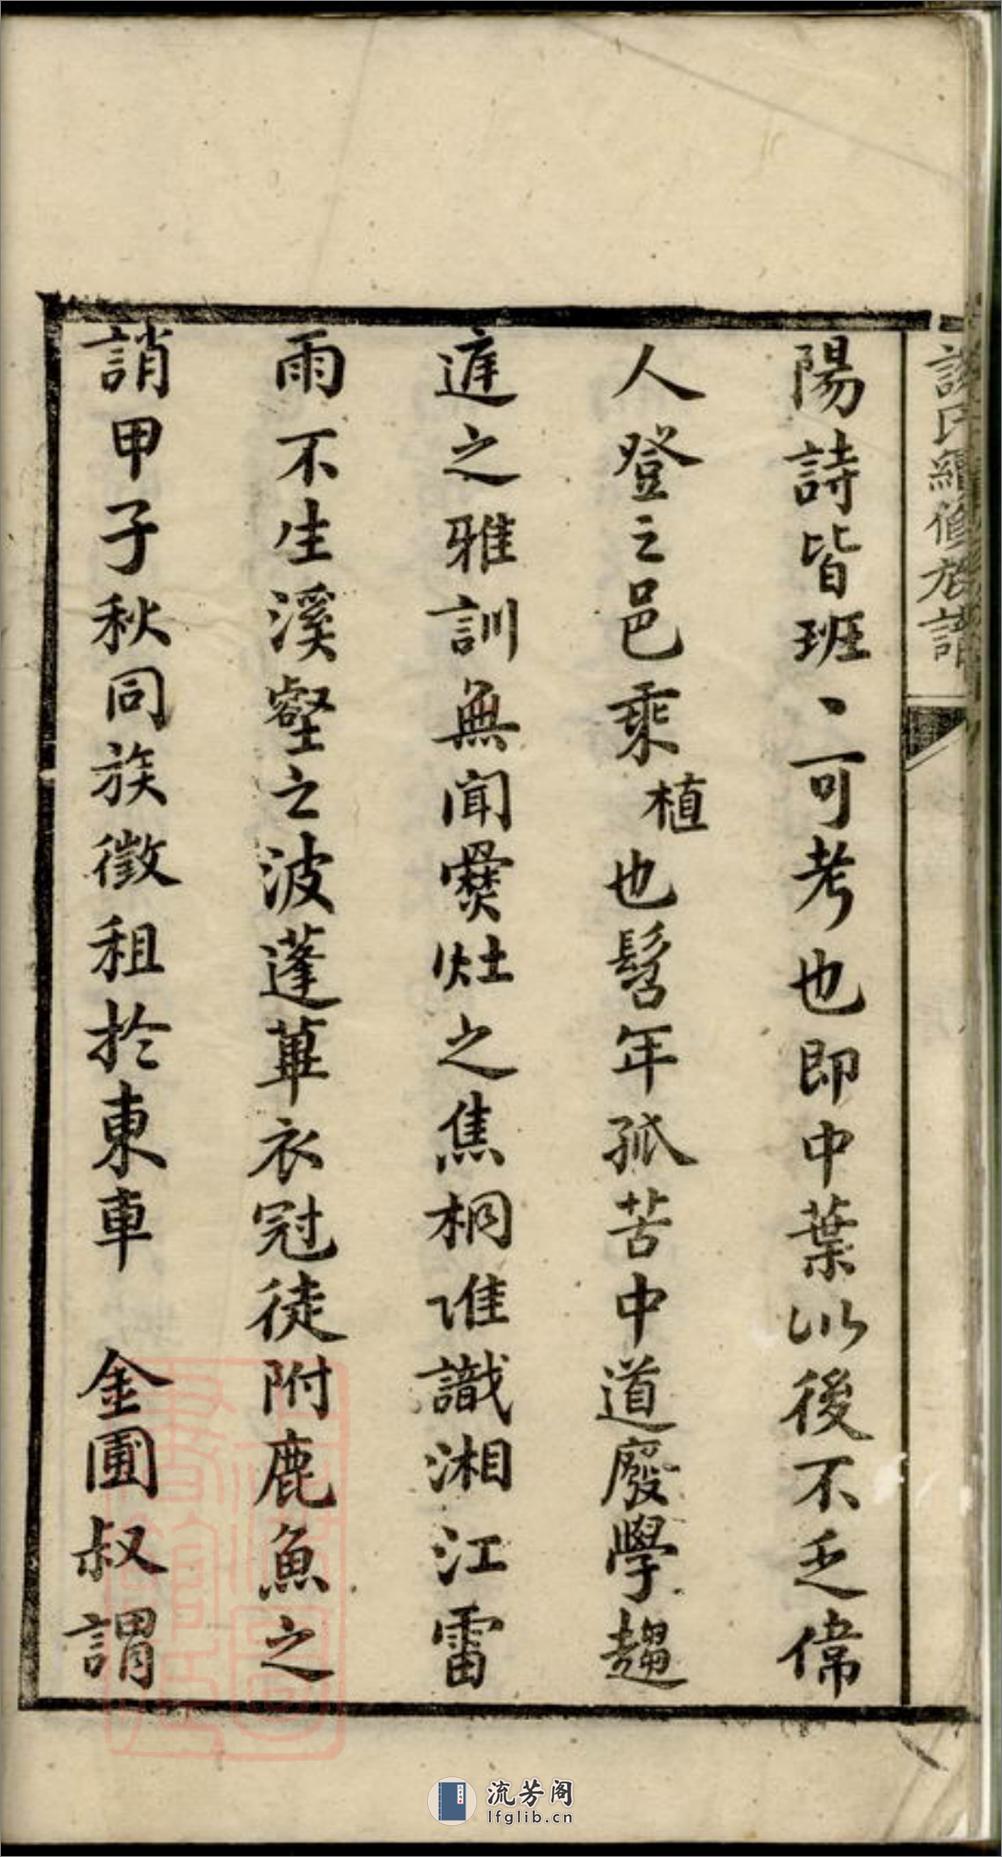 陽詩皆班〻可考也即中葉以後不乏偉
人登之邑乘植也髫年孤苦中道廢學趨
庭之雅訓無聞爨灶之焦桐誰識湘江雷
雨不生溪壑之波蓬蓽衣冠徒附鹿魚之
誚甲子秋同族徵租於東車 金圃叔謂
氏續修族譜
流芳阁
lfglib.cn